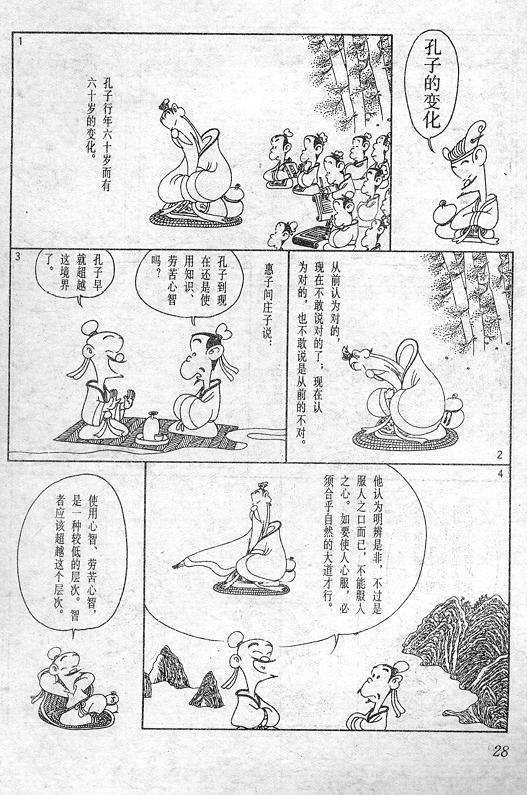 孔子的变化
1
孔子行年六十岁而有
六十岁的变化。
从前认为对的，
现在不敢说对的了；现在认
为对的，也不敢说是从前的不对。
2
3
惠子问庄子说：
孔子到现
在还是使
用知识、
劳苦心智
吗？
孔子早
就超越
这境界
了。
4
他认为明辨是非，不过是
服人之口而已，不能服人
之心。如要使人心服，必
须合乎自然的大道才行。
使用心智、劳苦心智，
是一种较低的层次。智
者应该超越这个层次。
28